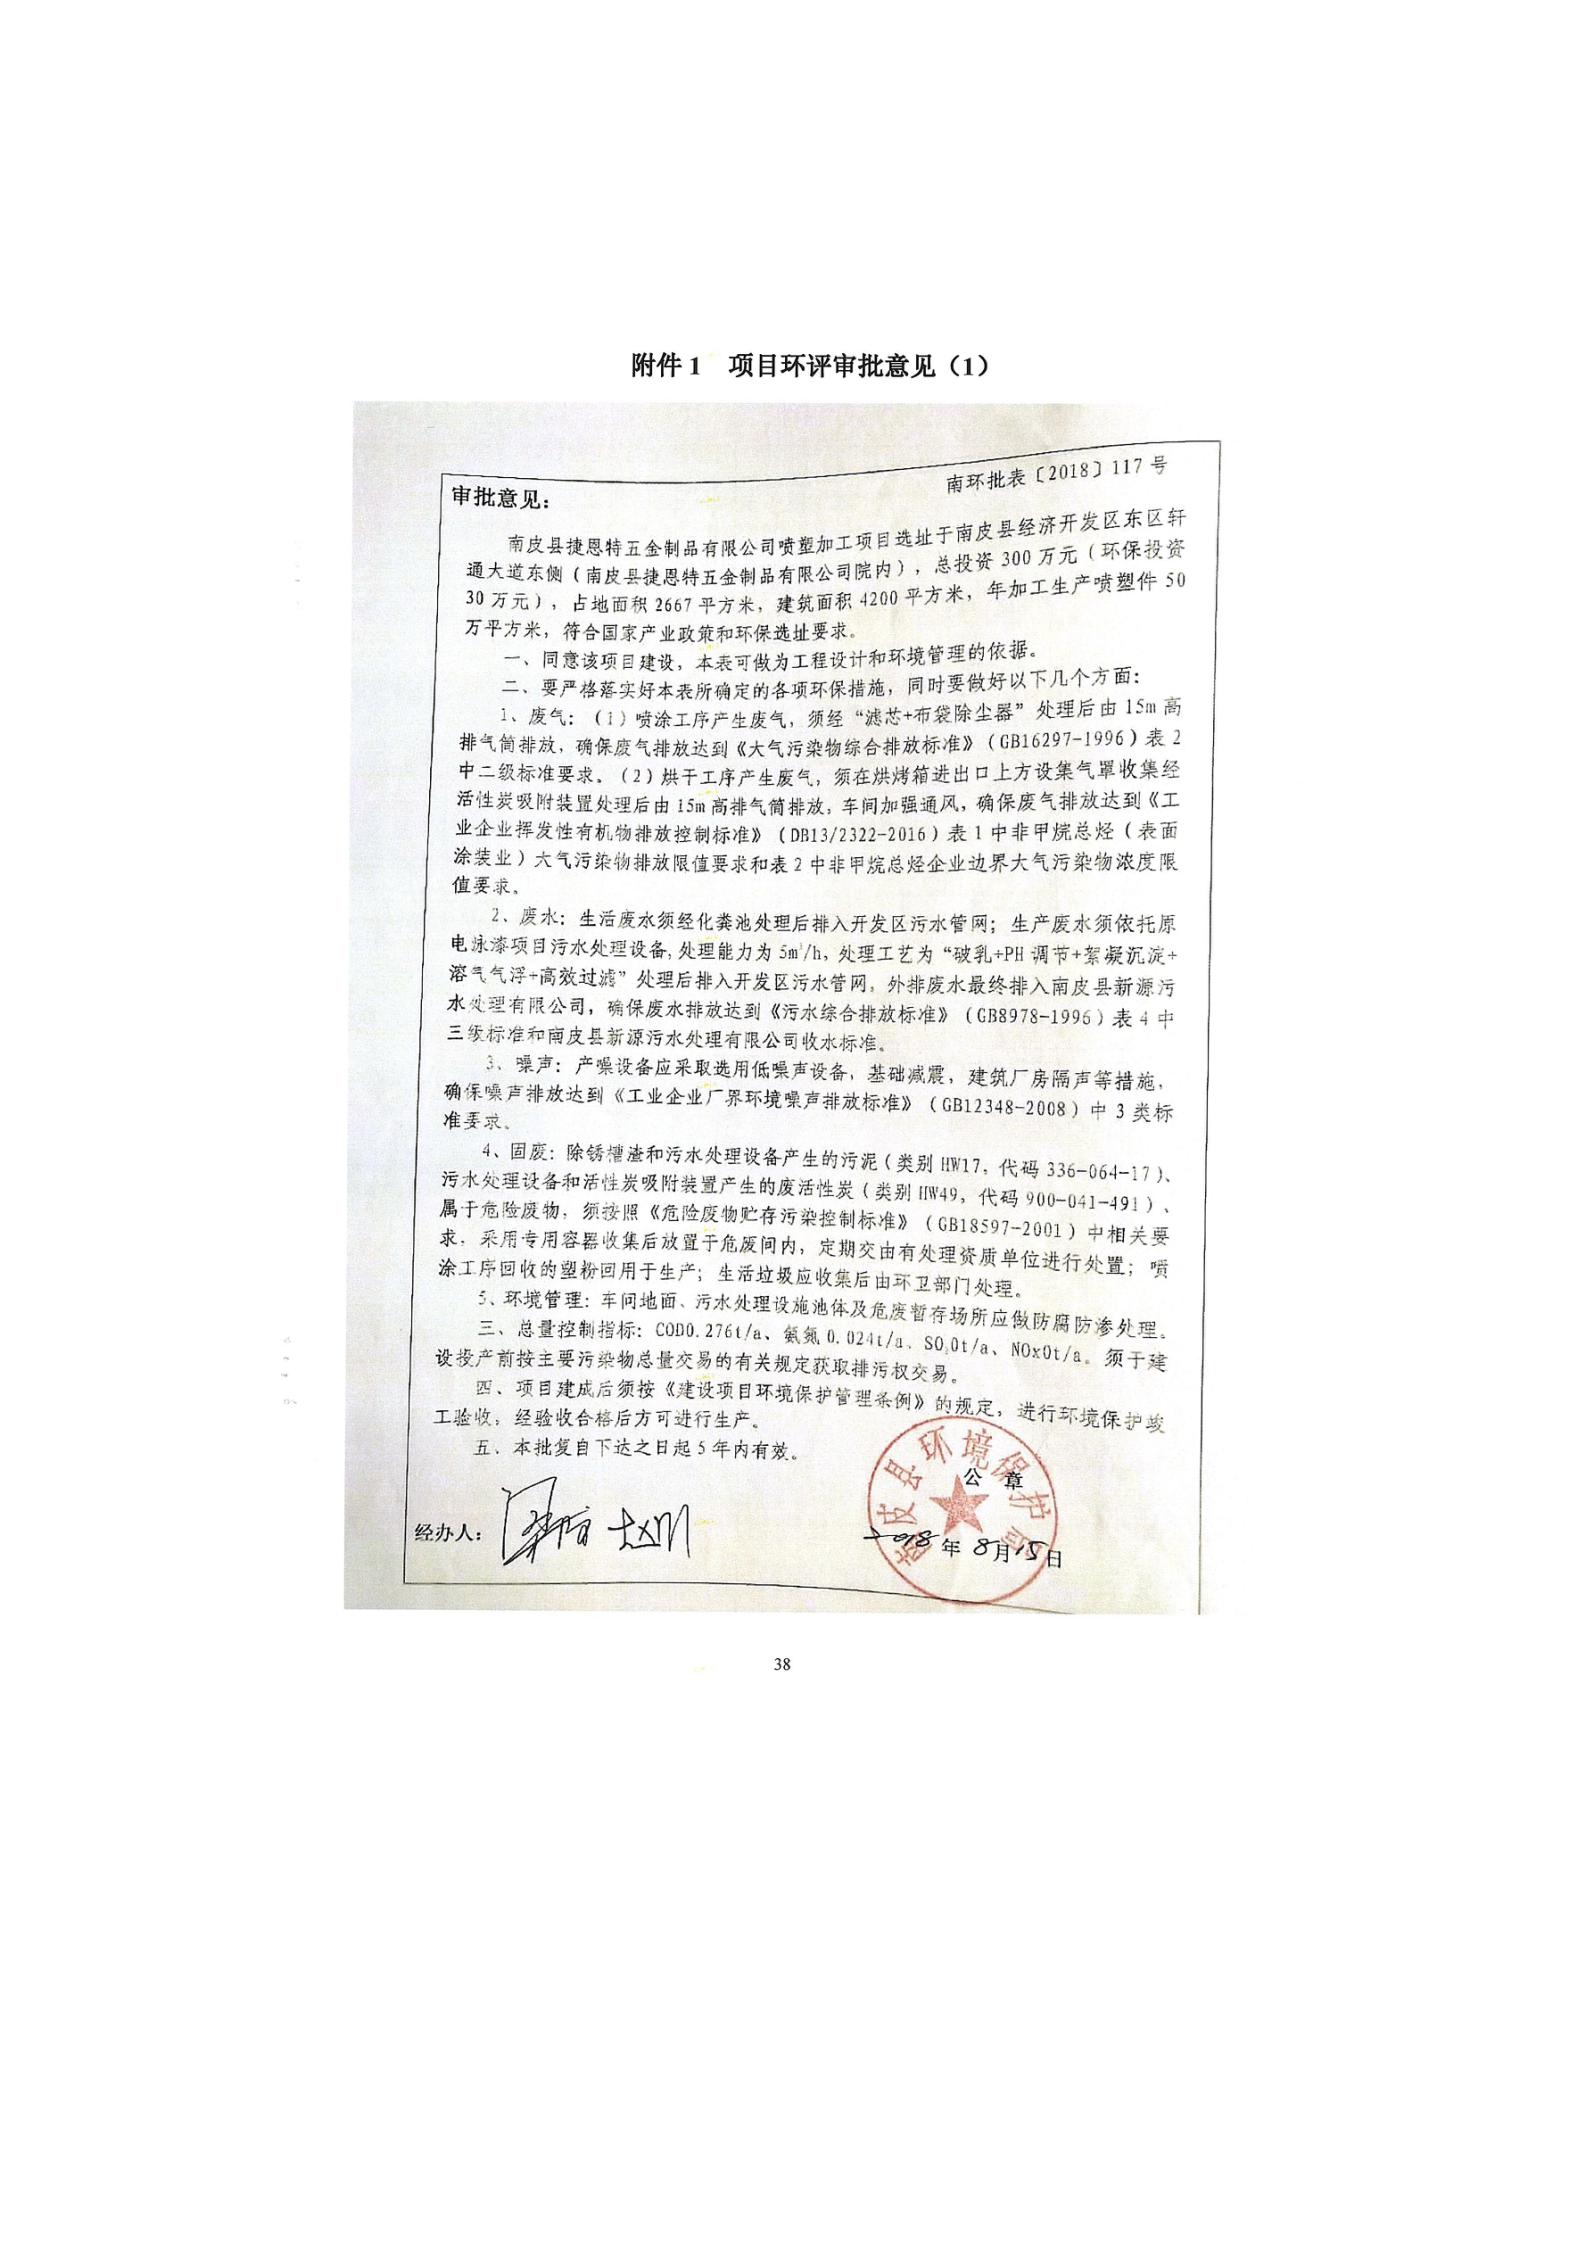 附件 1 项目环评审批意见（1）
南环批表〔2018〕117 号
审批意见：
南皮县捷恩特五金制品有限公司喷塑加工项目选址于南皮县经济开发区东区轩
通大道东侧（南皮县捷恩特五金制品有限公司院内），总投资 300 万元（环保投资
30 万元），占地面积 2667 平方米，建筑面积 4200 平方米，年加工生产喷塑件 50
万平方米，符合国家产业政策和环保选址要求。
一、同意该项目建设，本表可做为工程设计和环境管理的依据。
二、要严格落实好本表所确定的各项环保措施，同时要做好以下几个方面：
1、废气：（1）喷涂工序产生废气，须经“滤芯+布袋除尘器”处理后由 15m 高
排气筒排放，确保废气排放达到《大气污染物综合排放标准》（GB16297-1996）表 2
中二级标准要求。（2）烘干工序产生废气，须在烘烤箱进出口上方设集气罩收集经
活性炭吸附装置处理后由 15m 高排气筒排放，车间加强通风，确保废气排放达到《工
业企业挥发性有机物排放控制标准》（DB13/2322-2016）表 1 中非甲烷总烃（表面
涂装业）大气污染物排放限值要求和表 2 中非甲烷总烃企业边界大气污染物浓度限
值要求。
2、废水：生活废水须经化粪池处理后排入开发区污水管网；生产废水须依托原
电泳漆项目污水处理设备，处理能力为 5m³/h，处理工艺为“破乳+PH 调节+絮凝沉淀+
溶气气浮+高效过滤”处理后排入开发区污水管网，外排废水最终排入南皮县新源污
水处理有限公司，确保废水排放达到《污水综合排放标准》（GB8978-1996）表 4 中
三级标准和南皮县新源污水处理有限公司收水标准。
3、噪声：产噪设备应采取选用低噪声设备，基础减震，建筑厂房隔声等措施，
确保噪声排放达到《工业企业厂界环境噪声排放标准》（GB12348-2008）中 3 类标
准要求。
4、固废：除锈槽渣和污水处理设备产生的污泥（类别 HW17，代码 336-064-17）、
污水处理设备和活性炭吸附装置产生的废活性炭（类别 HW49，代码 900-041-491）、
属于危险废物，须按照《危险废物贮存污染控制标准》（GB18597-2001）中相关要
求，采用专用容器收集后放置于危废间内，定期交由有处理资质单位进行处置；喷
涂工序回收的塑粉回用于生产；生活垃圾应收集后由环卫部门处理。
5、环境管理：车间地面、污水处理设施池体及危废暂存场所应做防腐防渗处理。
三、总量控制指标：COD0.276t/a、氨氮 0.024t/a、SO₂0t/a、NOx0t/a。须于建
设投产前按主要污染物总量交易的有关规定获取排污权交易。
四、项目建成后须按《建设项目环境保护管理条例》的规定，进行环境保护竣
工验收，经验收合格后方可进行生产。
五、本批复自下达之日起 5 年内有效。
南皮县环境保护局
公 章
经办人：
2018 年 8 月 15 日
38